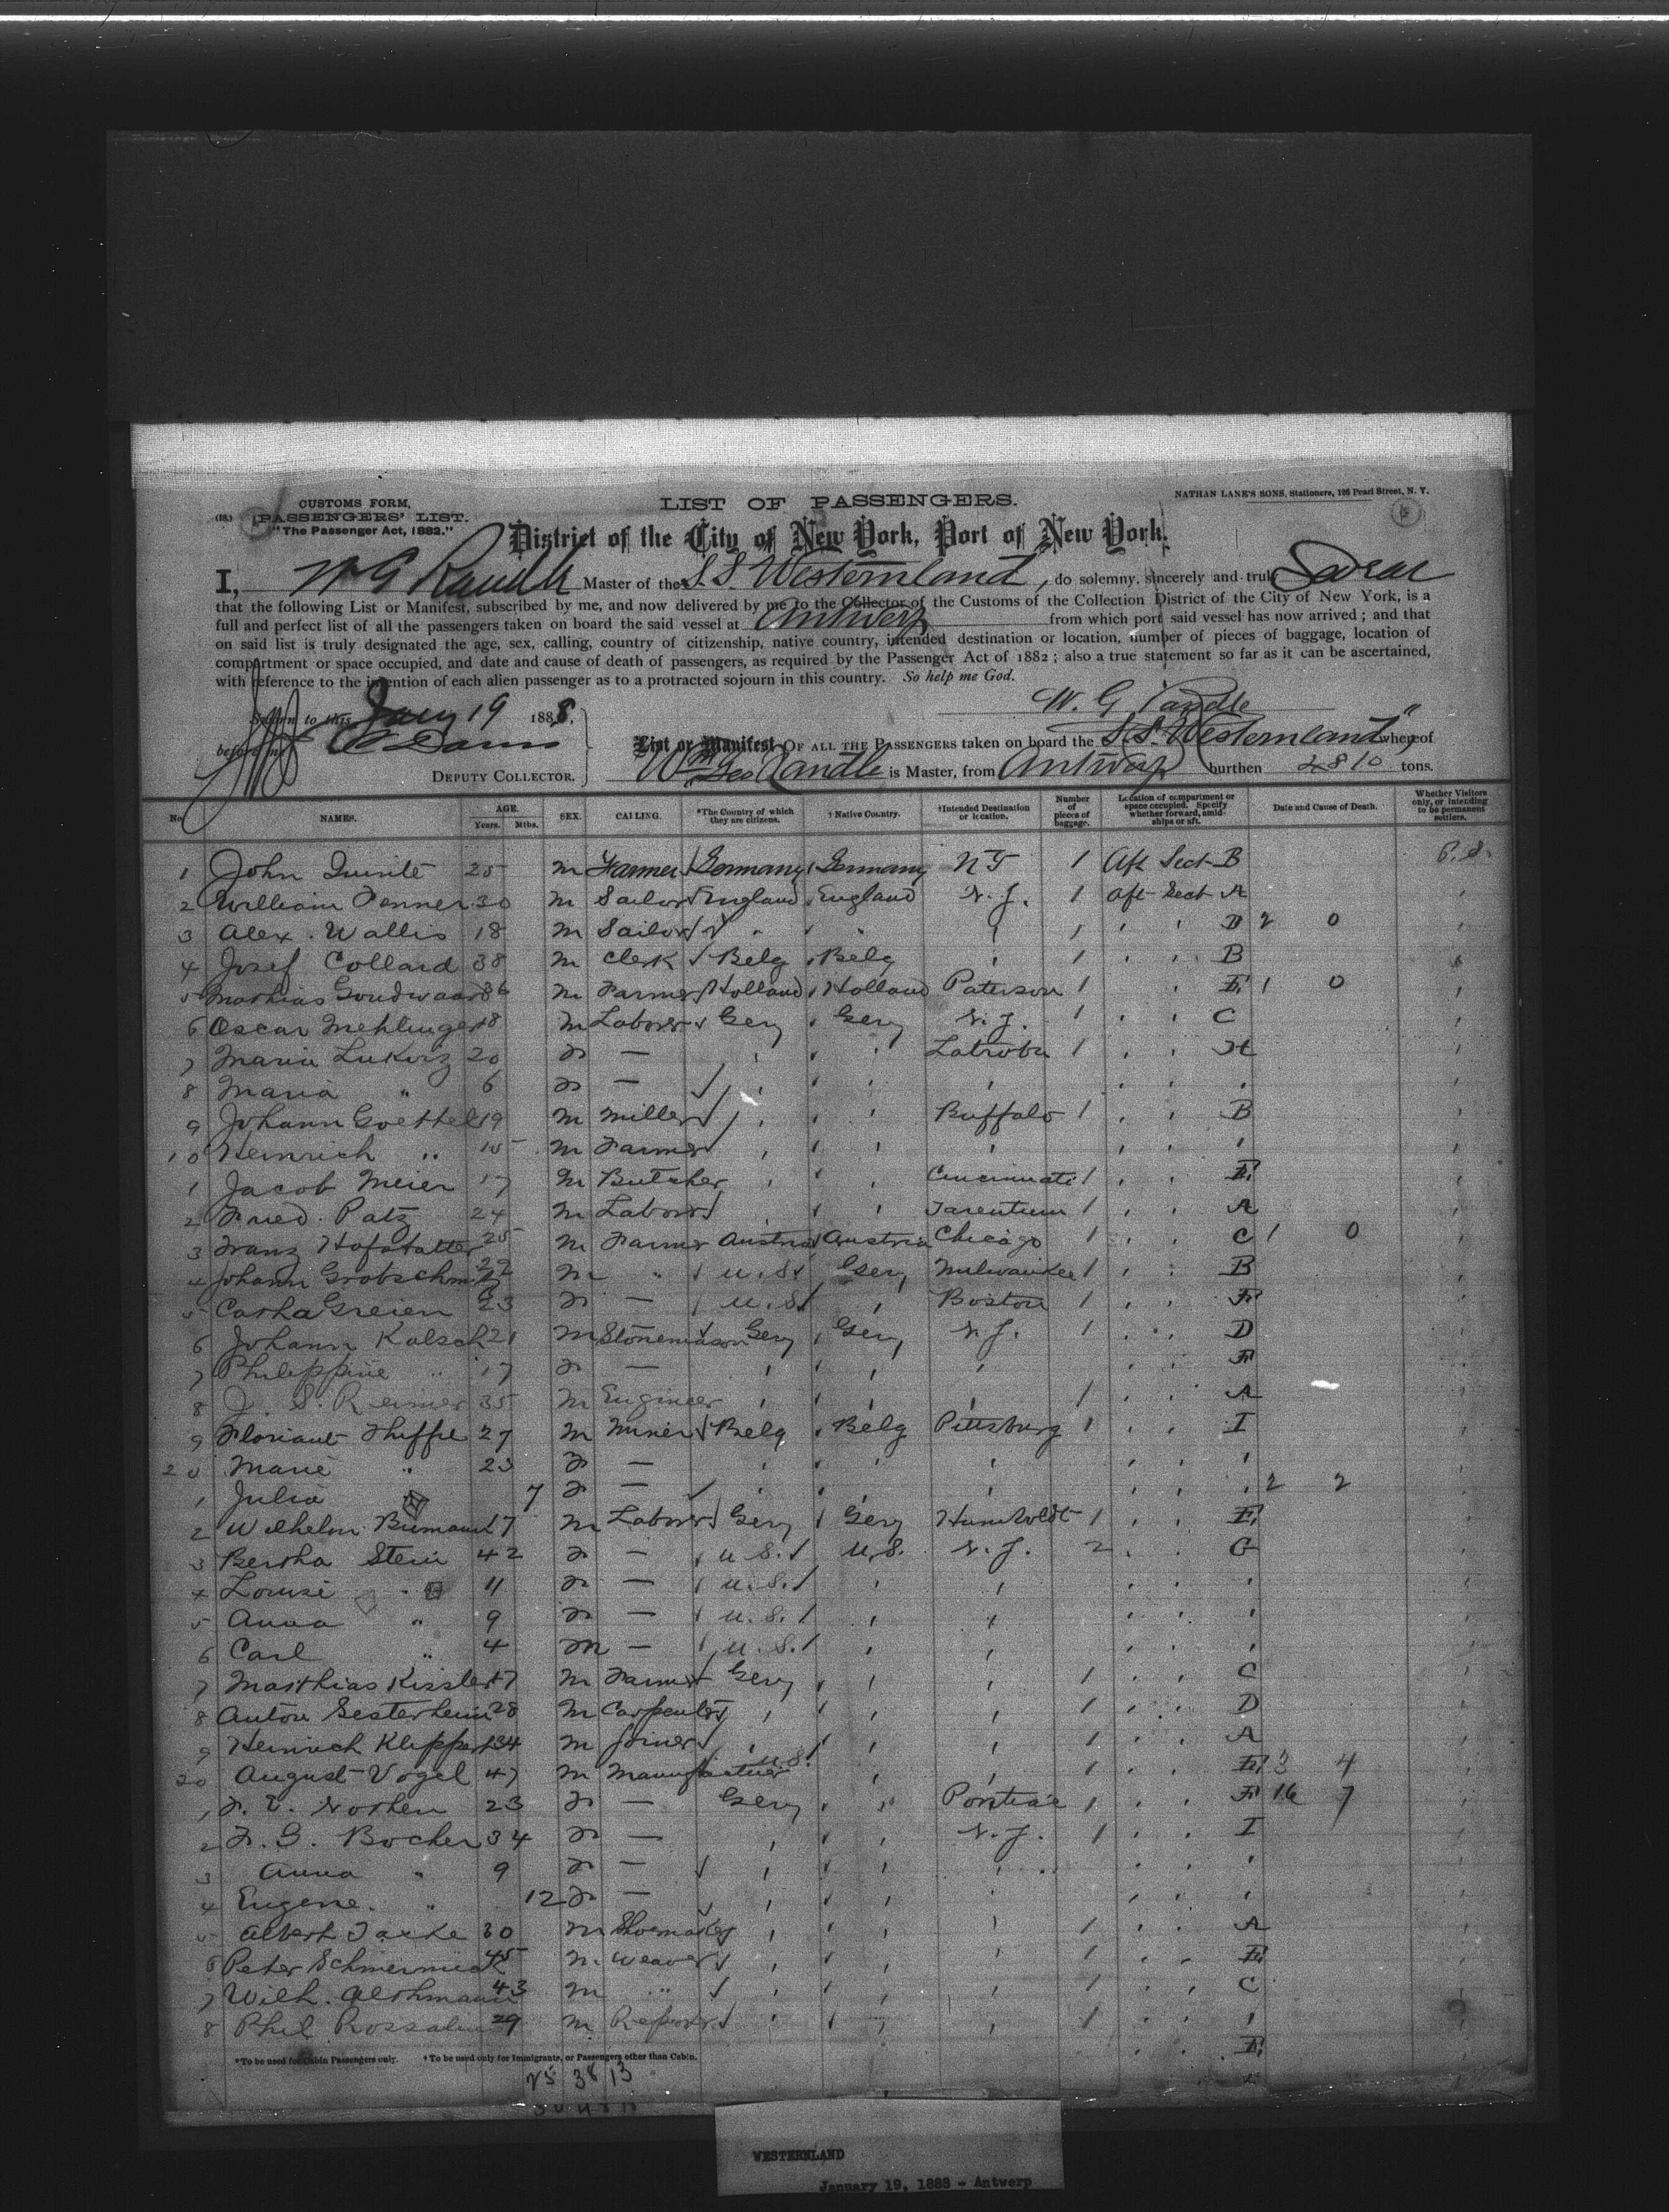 CUSTOMS FORM,
PASSENGERS' LIST.
"The Passenger Act, 1882."
LIST OF PASSENGERS.
NATHAN LANE'S SONS, Stationers, 126 Pearl Street, N. Y.
District of the City of New York, Port of New York.
I, W G Randle Master of the S.S. Westernland, do solemny, sincerely and truly Swear
that the following List or Manifest, subscribed by me, and now delivered by me to the Collector of the Customs of the Collection District of the City of New York, is a
full and perfect list of all the passengers taken on board the said vessel at Antwerp from which port said vessel has now arrived ; and that
on said list is truly designated the age, sex, calling, country of citizenship, native country, intended destination or location, number of pieces of baggage, location of
compartment or space occupied, and date and cause of death of passengers, as required by the Passenger Act of 1882 ; also a true statement so far as it can be ascertained,
with reference to the intention of each alien passenger as to a protracted sojourn in this country. So help me God.
W. G Randle
Sworn to this Jany 19 1888.
before me
DEPUTY COLLECTOR.
List or Manifest OF ALL THE PASSENGERS taken on board the S.S. "Westernland" whereof
Wm Geo Randle is Master, from Antwerp burthen tons.
No. NAMES. AGE. Years. Mths. SEX. CALLING. *The Country of which they are citizens. † Native Country. †Intended Destination or location. Number of pieces of baggage. Location of compartment or space occupied. Specify whether forward, amidships or aft. Date and Cause of Death. Whether Visitors only, or intending to be permanent settlers.
1 John 25 M Farmer Germany Germany 1 Aft Sect B P.S.
2 William Fenner 30 M Sailor England England N.J. 1 Aft Sect A
3 Alex. Wallis 18 M Sailor " " 1 D 2 0
4 Josef Collard 38 M Clerk Belg Belg 1 B
5 Mathias Goudwaard 36 M Farmer Holland Holland Paterson 1 E 1 0
6 Oscar Mehlinger 18 M Laborer Gery Gery N.J. 1 C
7 Maria 20 F — Latrobe 1 H
8 Maria " 6 F —
9 Johann Goethel 19 M Miller Buffalo 1 B
10 Heinrich " M Farmer
1 Jacob Meier 17 M Butcher Cincinnati 1 E
2 Fried. Patz 24 M Labour Tarentum 1 A
3 Franz Hofstatter 25 M Farmer Austria Austria Chicago 1 C 1 0
4 Johann M " U.S. Gery Milwaukee 1 B
5 Catha Greien 23 F — U.S. Boston 1 F
6 Johann Kalsch 21 M Stonemason Gery Gery N.J. 1 D
7 Philippine " 17 F — F
8 J. S. Reimer 35 M Engineer 1 A
9 27 M Miner Belg Belg Pittsburg 1 I
20 Marie " 23 F —
1 Julia " 7 F — 2 2
2 Wilhelm 17 M Laborer Gery Gery Humboldt 1 E
3 Bertha Stein 42 F — U.S. U.S. N.J. 2 G
4 Louise " 11 F — U.S.
5 Anna " 9 F — U.S.
6 Carl " 4 M — U.S.
7 Matthias Kissler M Farmer Gery 1 C
8 Anton Sesterhein 28 M Carpenter 1 D
9 Heinrich Klippert 34 M Joiner 1 A
August Vogel 47 M Manufacturer U.S. 1 E 3 4
1 F. E. Nothen 23 F — Gery Pontiac 1 F 16 7
2 F. G. Bocher 34 F — N.J. 1 I
3 Anna " 9 F —
4 Eugene. " 12 F —
5 Albert 30 M Shoemaker 1 A
6 Peter 45 M Weaver 1 E
7 Wilh. Althmann 43 M " 1 C
8 Phil 29 M 1
E
*To be used for Cabin Passengers only. †To be used only for Immigrants, or Passengers other than Cabin.
25 38 13
WESTERNLAND
January 19, 1888 - Antwerp